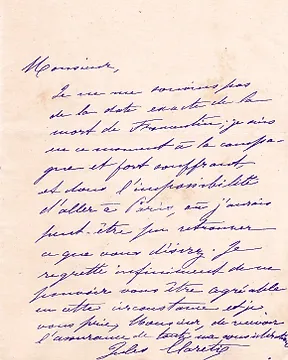 Monsieur,
Je ne me souviens pas
de la date exacte de la
mort de Fromentin ; je suis
en ce moment à la campa-
gne et fort souffrant
et dans l'impossibilité
d'aller à Paris, où j'aurais
peut-être pu retrouver
ce que vous désirez. Je
regrette infiniment de ne
pouvoir vous être agréable
en cette circonstance et je
vous prie, Monsieur, de recevoir
l'assurance de tout
Jules Claretie